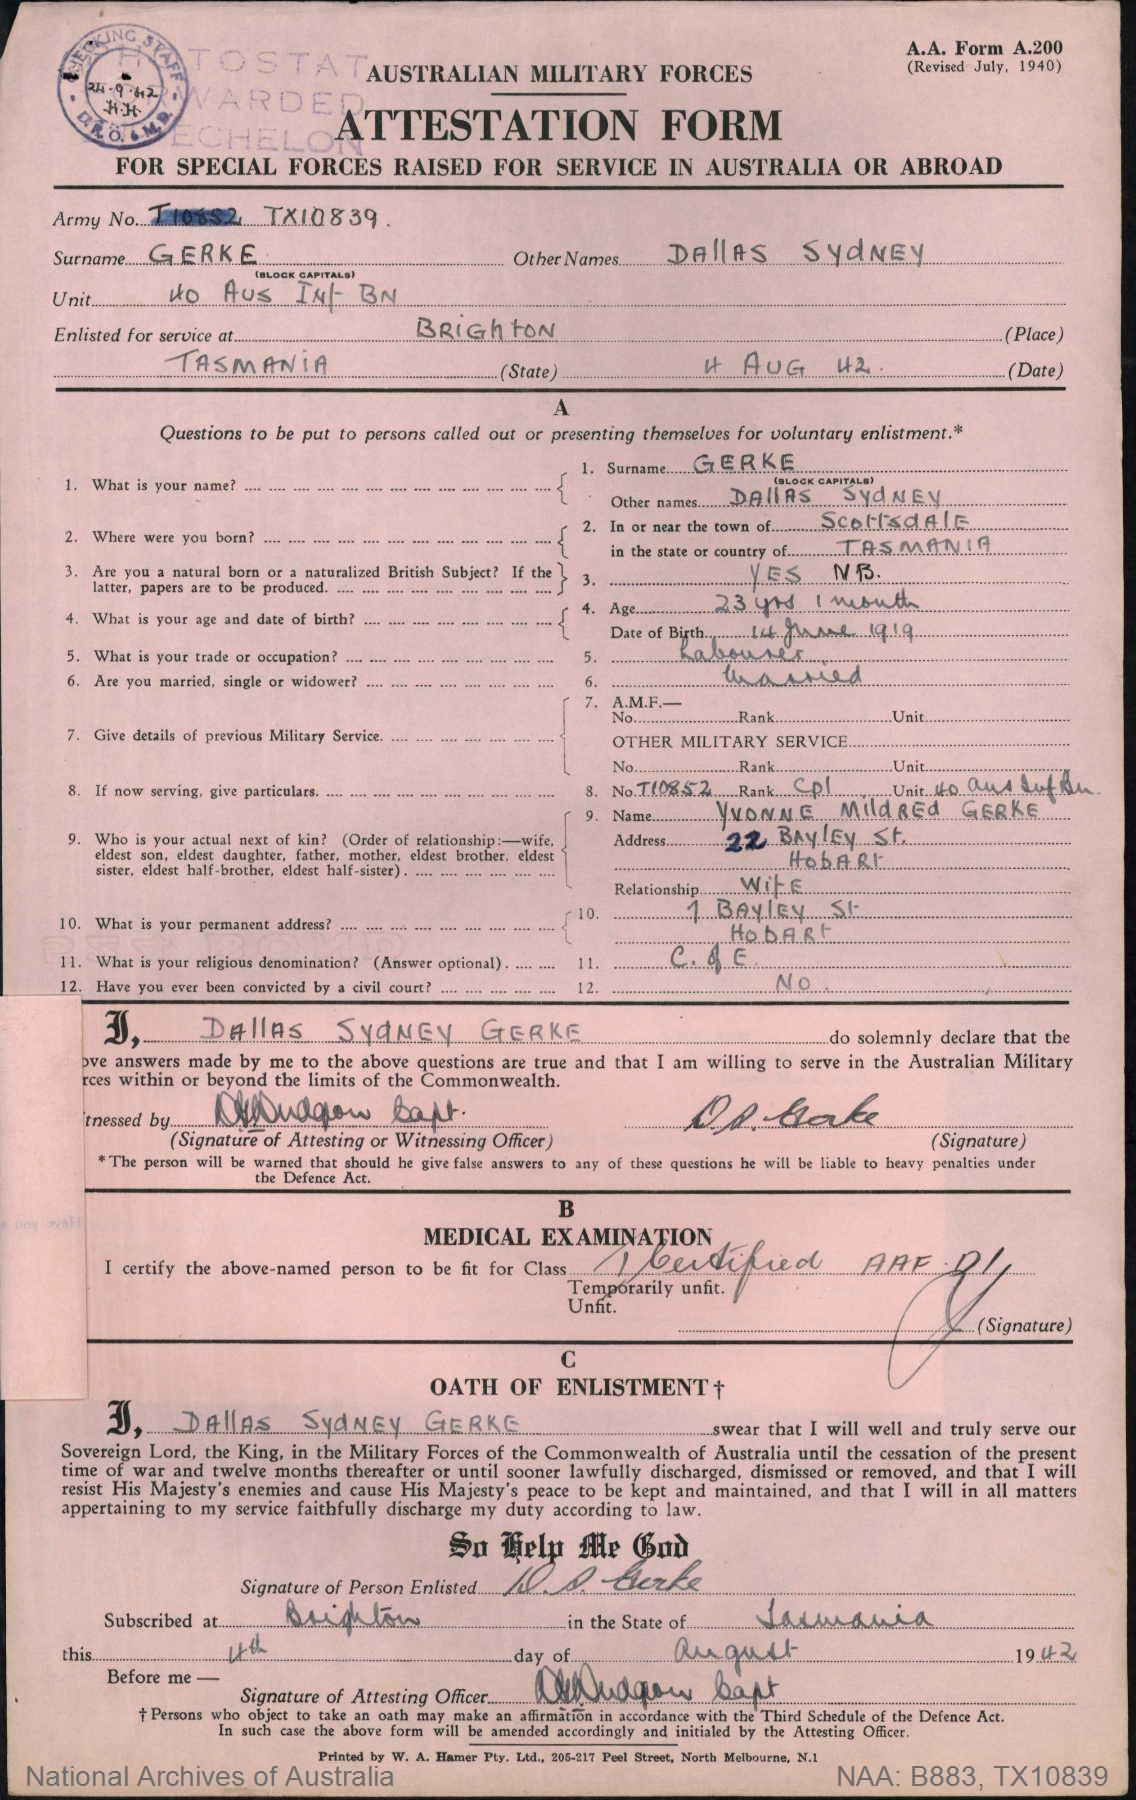 CHECKING STAFF
24·9·42
H.H.
D.R.O. & M.D.
PHOTOSTAT
FORWARDED
ECHELON
A.A. Form A.200
(Revised July, 1940)
AUSTRALIAN MILITARY FORCES
ATTESTATION FORM
FOR SPECIAL FORCES RAISED FOR SERVICE IN AUSTRALIA OR ABROAD
Army No. T10852 TX10839.
Surname GERKE Other Names DALLAS SYDNEY
(BLOCK CAPITALS)
Unit 40 AUS INF BN
Enlisted for service at BRIGHTON (Place)
TASMANIA (State) 4 AUG 42. (Date)
A
Questions to be put to persons called out or presenting themselves for voluntary enlistment.*
1. What is your name? 1. Surname GERKE
(BLOCK CAPITALS)
Other names DALLAS SYDNEY
2. Where were you born? 2. In or near the town of SCOTTSDALE
in the state or country of TASMANIA
3. Are you a natural born or a naturalized British Subject? If the
latter, papers are to be produced. 3. YES NB.
4. What is your age and date of birth? 4. Age 23 yrs 1 month
Date of Birth 14 June 1919
5. What is your trade or occupation? 5. Labourer
6. Are you married, single or widower? 6. Married
7. Give details of previous Military Service. 7. A.M.F.—
No. Rank Unit
OTHER MILITARY SERVICE
No. Rank Unit
8. If now serving, give particulars. 8. No. T10852 Rank Cpl Unit 40 Aus Inf Bn
9. Who is your actual next of kin? (Order of relationship:—wife,
eldest son, eldest daughter, father, mother, eldest brother, eldest
sister, eldest half-brother, eldest half-sister).
9. Name YVONNE MILDRED GERKE
Address 22 BAYLEY St.
HOBART
Relationship WIFE
10. What is your permanent address? 10. 7 BAYLEY St
HOBART
11. What is your religious denomination? (Answer optional). 11. C. of E.
12. Have you ever been convicted by a civil court? 12. NO.
I, DALLAS SYDNEY GERKE do solemnly declare that the
ove answers made by me to the above questions are true and that I am willing to serve in the Australian Military
rces within or beyond the limits of the Commonwealth.
tnessed by Capt. D. S. Gerke
(Signature of Attesting or Witnessing Officer) (Signature)
*The person will be warned that should he give false answers to any of these questions he will be liable to heavy penalties under
the Defence Act.
B
MEDICAL EXAMINATION
I certify the above-named person to be fit for Class 1 Certified AAF D1
Temporarily unfit.
Unfit.
(Signature)
C
OATH OF ENLISTMENT †
I, DALLAS SYDNEY GERKE swear that I will well and truly serve our
Sovereign Lord, the King, in the Military Forces of the Commonwealth of Australia until the cessation of the present
time of war and twelve months thereafter or until sooner lawfully discharged, dismissed or removed, and that I will
resist His Majesty's enemies and cause His Majesty's peace to be kept and maintained, and that I will in all matters
appertaining to my service faithfully discharge my duty according to law.
So Help Me God
Signature of Person Enlisted D. S. Gerke
Subscribed at Brighton in the State of Tasmania
this 4th day of August 1942
Before me —
Signature of Attesting Officer Capt
† Persons who object to take an oath may make an affirmation in accordance with the Third Schedule of the Defence Act.
In such case the above form will be amended accordingly and initialed by the Attesting Officer.
Printed by W. A. Hamer Pty. Ltd., 205-217 Peel Street, North Melbourne, N.1
National Archives of Australia NAA: B883, TX10839